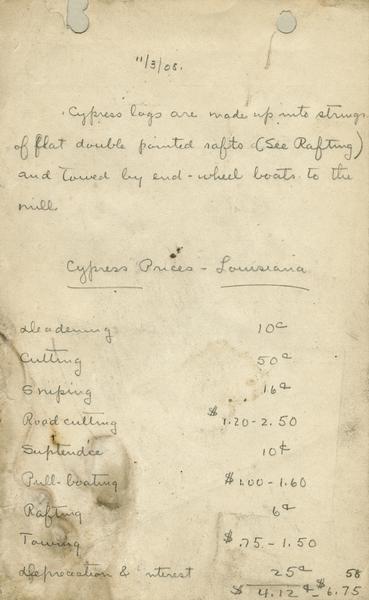 11/3/08.
Cypress logs are made up into strings
of flat double pointed rafts (See Rafting)
and towed by end-wheel boats to the
mill.
Cypress Prices - Louisiana
Deadening 10¢
Cutting 50¢
Sniping 16¢
Road cutting $1.20-2.50
10¢
Pull-boating $1.00-1.60
Rafting 6¢
Towing $.75-1.50
Depreciation & interest 25¢ 58
$4.12 - $6.75